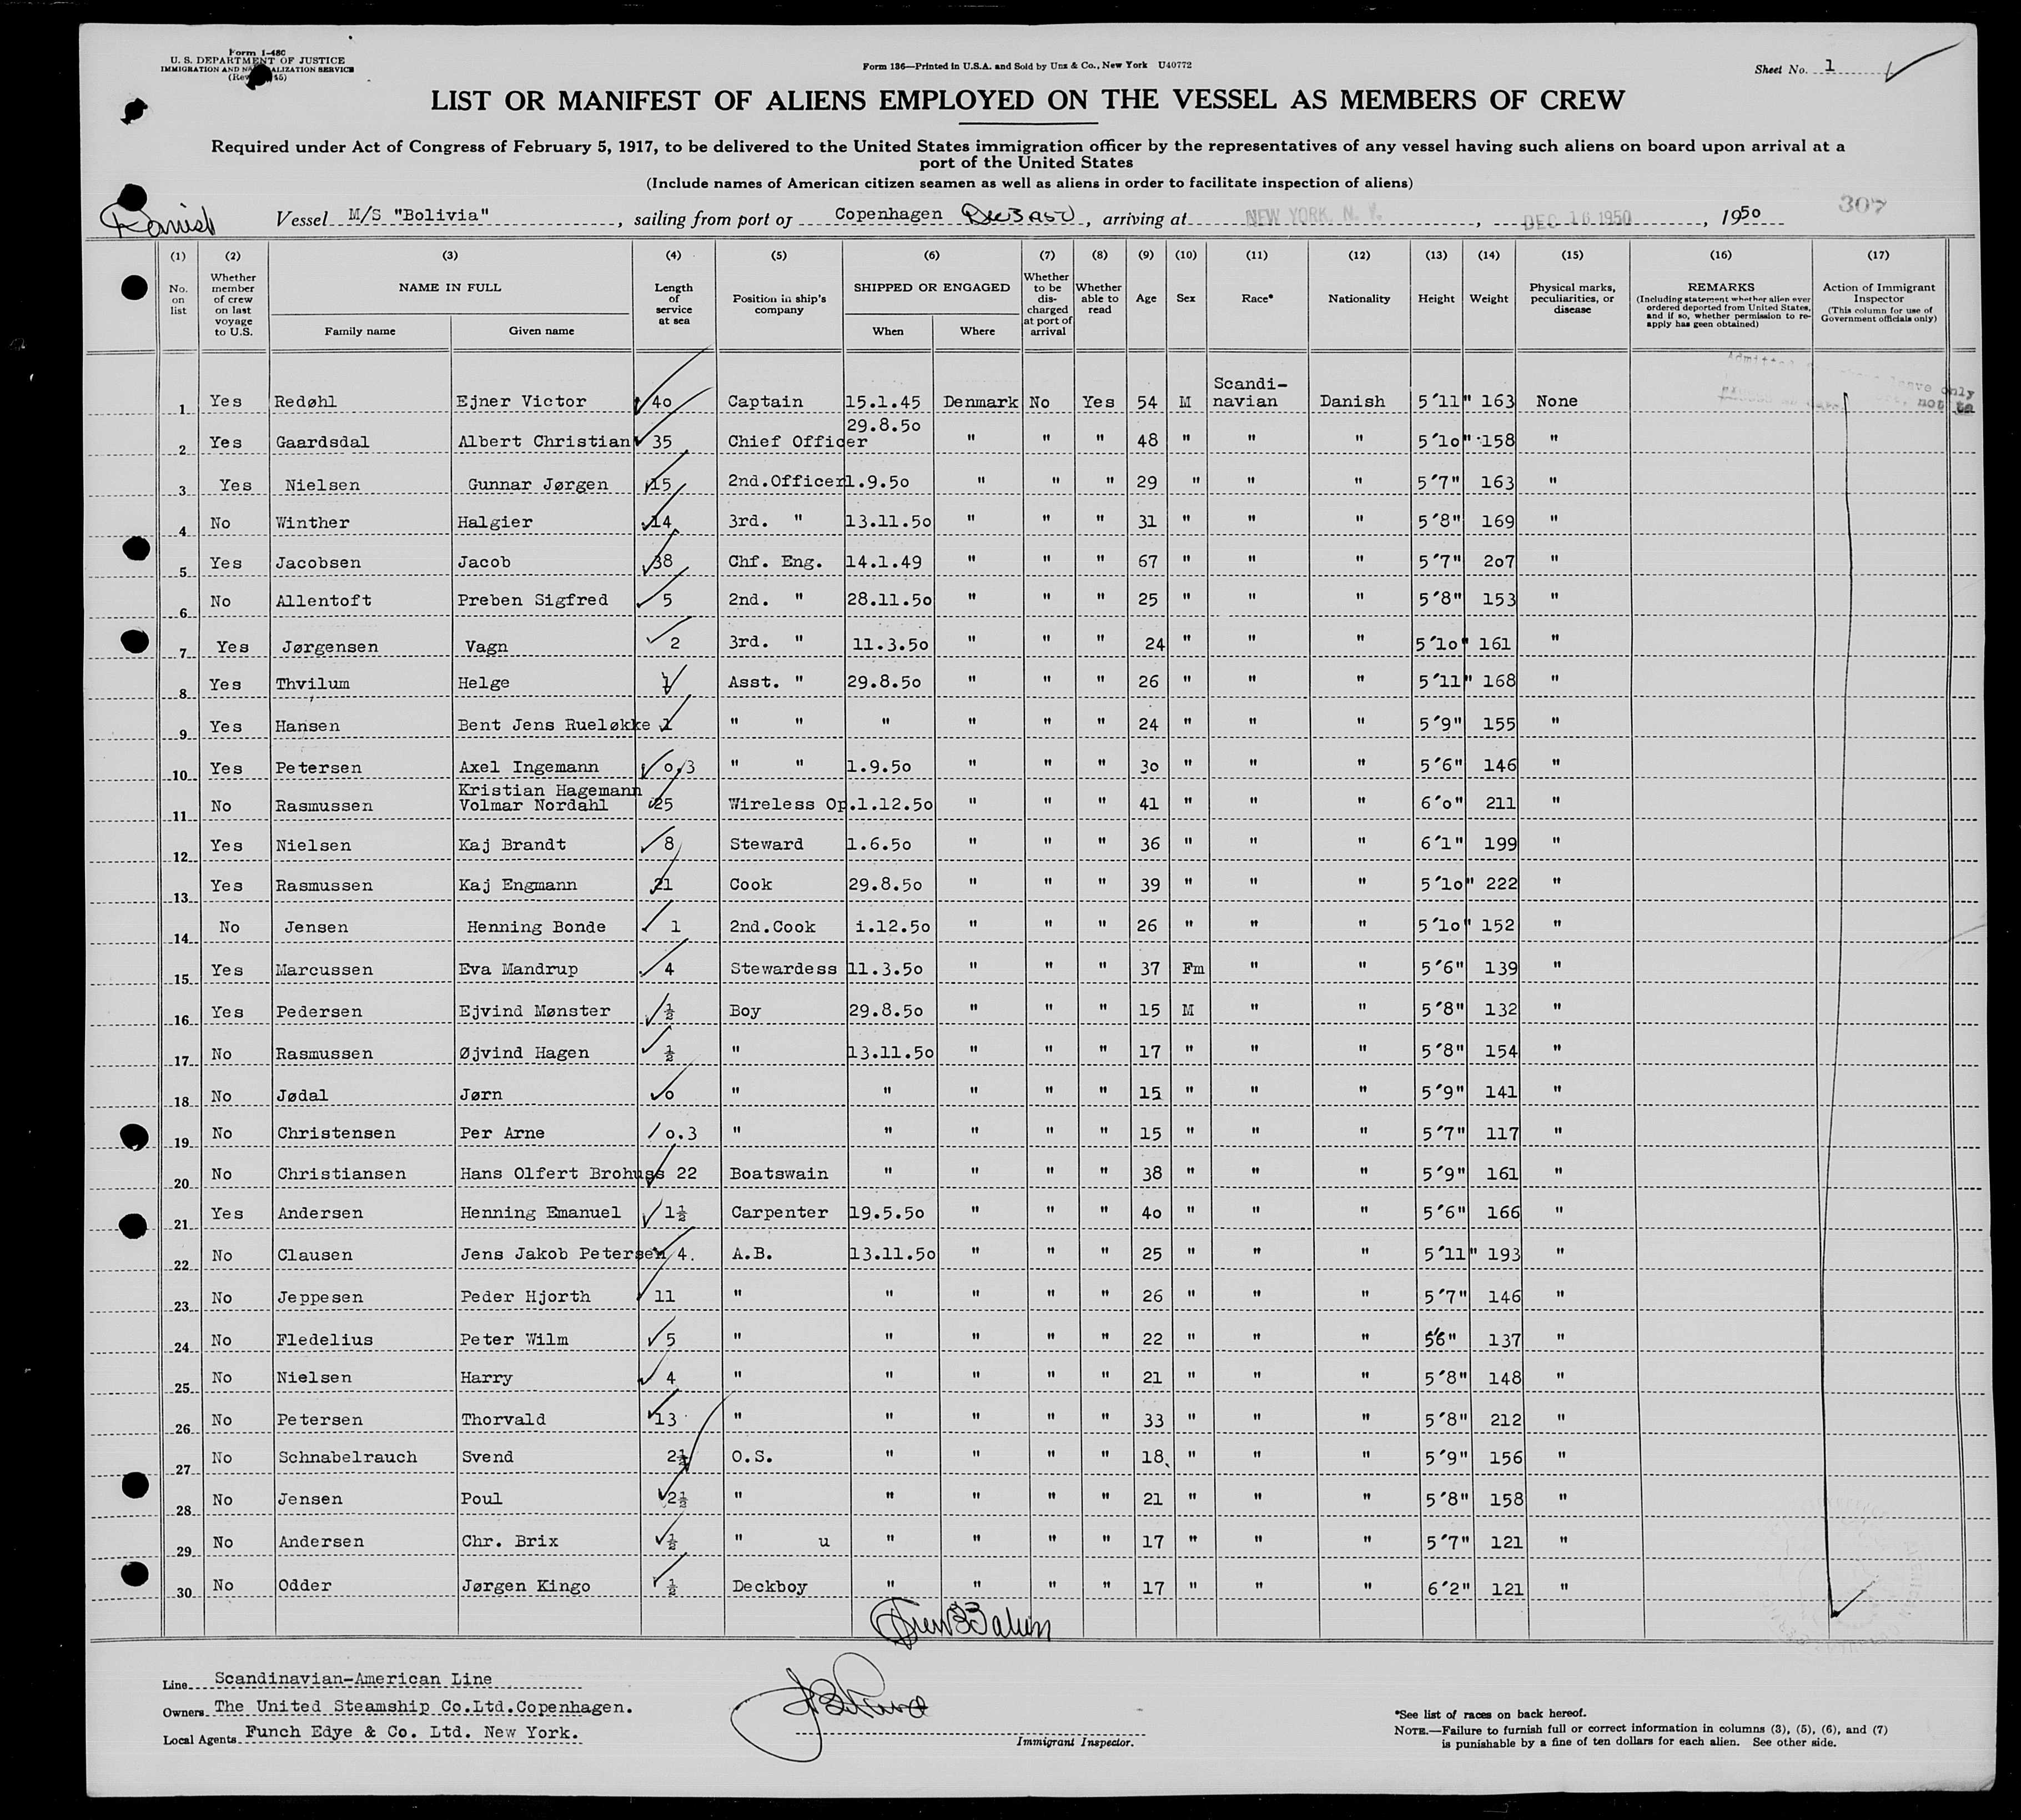 Form I-480
U. S. DEPARTMENT OF JUSTICE
IMMIGRATION AND NATURALIZATION SERVICE
Form 136—Printed in U.S.A. and Sold by Unz & Co., New York U40772
Sheet No. 1
LIST OR MANIFEST OF ALIENS EMPLOYED ON THE VESSEL AS MEMBERS OF CREW
Required under Act of Congress of February 5, 1917, to be delivered to the United States immigration officer by the representatives of any vessel having such aliens on board upon arrival at a
port of the United States
(Include names of American citizen seamen as well as aliens in order to facilitate inspection of aliens)
Danish
Vessel M/S "Bolivia", sailing from port of Copenhagen Dec 3, arriving at NEW YORK, N. Y., DEC 16 1950, 1950
307
(1) No. on list
(2) Whether member of crew on last voyage to U.S.
(3) NAME IN FULL Family name Given name
(4) Length of service at sea
(5) Position in ship's company
(6) SHIPPED OR ENGAGED When Where
(7) Whether to be discharged at port of arrival
(8) Whether able to read
(9) Age
(10) Sex
(11) Race*
(12) Nationality
(13) Height
(14) Weight
(15) Physical marks, peculiarities, or disease
(16) REMARKS (Including statement whether alien ever ordered deported from United States, and if so, whether permission to reapply has geen obtained)
(17) Action of Immigrant Inspector (This column for use of Government officials only)
1 Yes Redøhl Ejner Victor 40 Captain 15.1.45 Denmark No Yes 54 M Scandi-navian Danish 5'11" 163 None
2 Yes Gaardsdal Albert Christian 35 Chief Officer 29.8.50 " " " 48 " " " 5'10" 158 "
3 Yes Nielsen Gunnar Jørgen 15 2nd.Officer 1.9.50 " " " 29 " " " 5'7" 163 "
4 No Winther Halgier 14 3rd. " 13.11.50 " " " 31 " " " 5'8" 169 "
5 Yes Jacobsen Jacob 38 Chf. Eng. 14.1.49 " " " 67 " " " 5'7" 207 "
6 No Allentoft Preben Sigfred 5 2nd. " 28.11.50 " " " 25 " " " 5'8" 153 "
7 Yes Jørgensen Vagn 2 3rd. " 11.3.50 " " " 24 " " " 5'10" 161 "
8 Yes Thvilum Helge 1 Asst. " 29.8.50 " " " 26 " " " 5'11" 168 "
9 Yes Hansen Bent Jens Rueløkke 1 " " " " " " 24 " " " 5'9" 155 "
10 Yes Petersen Axel Ingemann 0.3 " " 1.9.50 " " " 30 " " " 5'6" 146 "
11 No Rasmussen Kristian Hagemann Volmar Nordahl 25 Wireless Op. 1.12.50 " " " 41 " " " 6'0" 211 "
12 Yes Nielsen Kaj Brandt 8 Steward 1.6.50 " " " 36 " " " 6'1" 199 "
13 Yes Rasmussen Kaj Engmann 21 Cook 29.8.50 " " " 39 " " " 5'10" 222 "
14 No Jensen Henning Bonde 1 2nd.Cook 1.12.50 " " " 26 " " " 5'10" 152 "
15 Yes Marcussen Eva Mandrup 4 Stewardess 11.3.50 " " " 37 Fm " " 5'6" 139 "
16 Yes Pedersen Ejvind Mønster ½ Boy 29.8.50 " " " 15 M " " 5'8" 132 "
17 No Rasmussen Øjvind Hagen ½ " 13.11.50 " " " 17 " " " 5'8" 154 "
18 No Jødal Jørn 0 " " " " " 15 " " " 5'9" 141 "
19 No Christensen Per Arne 0.3 " " " " " 15 " " " 5'7" 117 "
20 No Christiansen Hans Olfert Brohuss 22 Boatswain " " " " 38 " " " 5'9" 161 "
21 Yes Andersen Henning Emanuel 1½ Carpenter 19.5.50 " " " 40 " " " 5'6" 166 "
22 No Clausen Jens Jakob Petersen 4. A.B. 13.11.50 " " " 25 " " " 5'11" 193 "
23 No Jeppesen Peder Hjorth 11 " " " " " 26 " " " 5'7" 146 "
24 No Fledelius Peter Wilm 5 " " " " " 22 " " " 5'6" 137 "
25 No Nielsen Harry 4 " " " " " 21 " " " 5'8" 148 "
26 No Petersen Thorvald 13 " " " " " 33 " " " 5'8" 212 "
27 No Schnabelrauch Svend 2½ O.S. " " " " 18 " " " 5'9" 156 "
28 No Jensen Poul 2½ " " " " " 21 " " " 5'8" 158 "
29 No Andersen Chr. Brix ½ " u " " " " 17 " " " 5'7" 121 "
30 No Odder Jørgen Kingo ½ Deckboy " " " " 17 " " " 6'2" 121 "
Line Scandinavian-American Line
Owners The United Steamship Co.Ltd.Copenhagen.
Local Agents Funch Edye & Co. Ltd. New York.
Immigrant Inspector.
*See list of races on back hereof.
NOTE.—Failure to furnish full or correct information in columns (3), (5), (6), and (7)
is punishable by a fine of ten dollars for each alien. See other side.